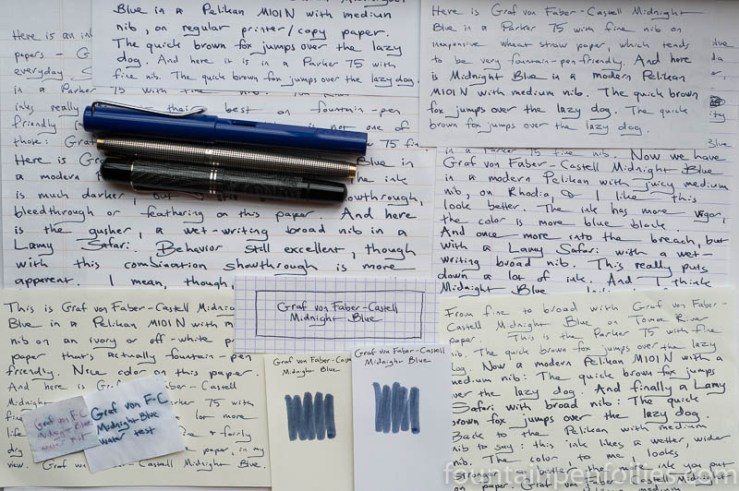 Blue in a Pelikan M101N with medium
nib, on regular printer/copy paper.
The quick brown fox jumps over the lazy
dog. And here it is in a Parker 75 with
fine nib. The quick brown fox jumps over the lazy dog.
Here is Graf von Faber-Castell Midnight
Blue in a Parker 75 with fine nib on
inexpensive wheat straw paper, which tends
to be very fountain-pen-friendly. And here
is Midnight Blue in a modern Pelikan
M101N with medium nib. The quick brown
fox jumps over the lazy dog. The quick
brown fox jumps over the lazy dog.
Here is an ink
papers - G
everyday
in a Parker 75 with
inks really their best on fountain-pen
friendly is not one of
those: Gra 75 fin
Here is Gra Blue in
a modern ink
is much darker, showthrough,
bleedthrough or feathering on this paper. And here
is the gusher, a wet-writing broad nib in a
Lamy Safari. Behavior still excellent, though
with this combination showthrough is more
apparent. I mean, though,
in a Parker 75 fine nib. Now we have
Graf von Faber-Castell Midnight Blue
in a modern Pelikan with juicy medium
nib, on Rhodia, & I like this
look better. The ink has more vigor,
the color is more blue black.
And once more into the breach, but
with a Lamy Safari with a wet-
writing broad nib. This really puts
down a lot of ink. And I think
Midnight Blue
This is Graf von Faber-Castell Midnight
Blue in a Pelikan M101N with m
nib on an ivory or off-white p
paper that's actually fountain-pen
friendly. Nice color on this paper.
And here is Graf von Faber-Castell
Midnight Parker 75 with
fine lot more
life fairly
dry paper, in my
view. Graf von Faber-Castell Midnight Blue.
Graf von F-C
Midnight Blue
water test
Graf von F-C
Midnight Blue
water test
Graf von Faber-Castell
Midnight Blue
Graf von Faber-Cast
Midnight Blue
Graf von Faber-Castell
Midnight Blue
From fine to broad with Graf von Faber-
Castell Midnight Blue on Tomoe River
paper. This is the Parker 75 with fine
nib. The quick brown fox jumps over the lazy
dog. Now a modern Pelikan M101N with a
medium nib: The quick brown fox jumps
over the lazy dog. And finally a Lamy
Safari with broad nib: The quick
brown fox jumps over the lazy dog.
Back to the Pelikan with medium
nib to say: this ink likes a wetter, wider
nib. The color to me looks
stronger the more ink you put
on paper. Graf von Faber-Castell Midnight Blue.
fountainpenfollies.com